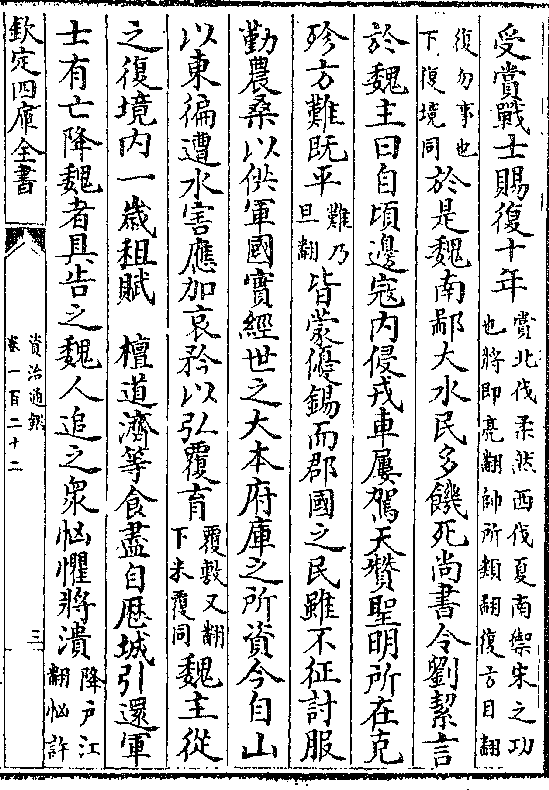 受賞戰士賜復十年賞北伐柔然西伐夏南禦宋之功也將即亮翻帥所類翻復方目翻
復勿事也下復境同於是魏南鄙大水民多饑死尚書令劉絜言
於魏主曰自頃邊寇内侵戎車屢駕天贊聖明所在克
殄方難既平難乃旦翻皆蒙優錫而郡國之民雖不征討服
勤農桑以供軍國實經世之大本府庫之所資今自山
以東徧遭水害應加哀矜以弘覆育覆敷又翻下米覆同魏主從
之復境内一歲租賦　檀道濟等食盡自厯城引還軍
士有亡降魏者具告之魏人追之衆恟懼將潰降戸江翻恟許
欽定四庫全書
資治通鑑
卷一百二十二
三